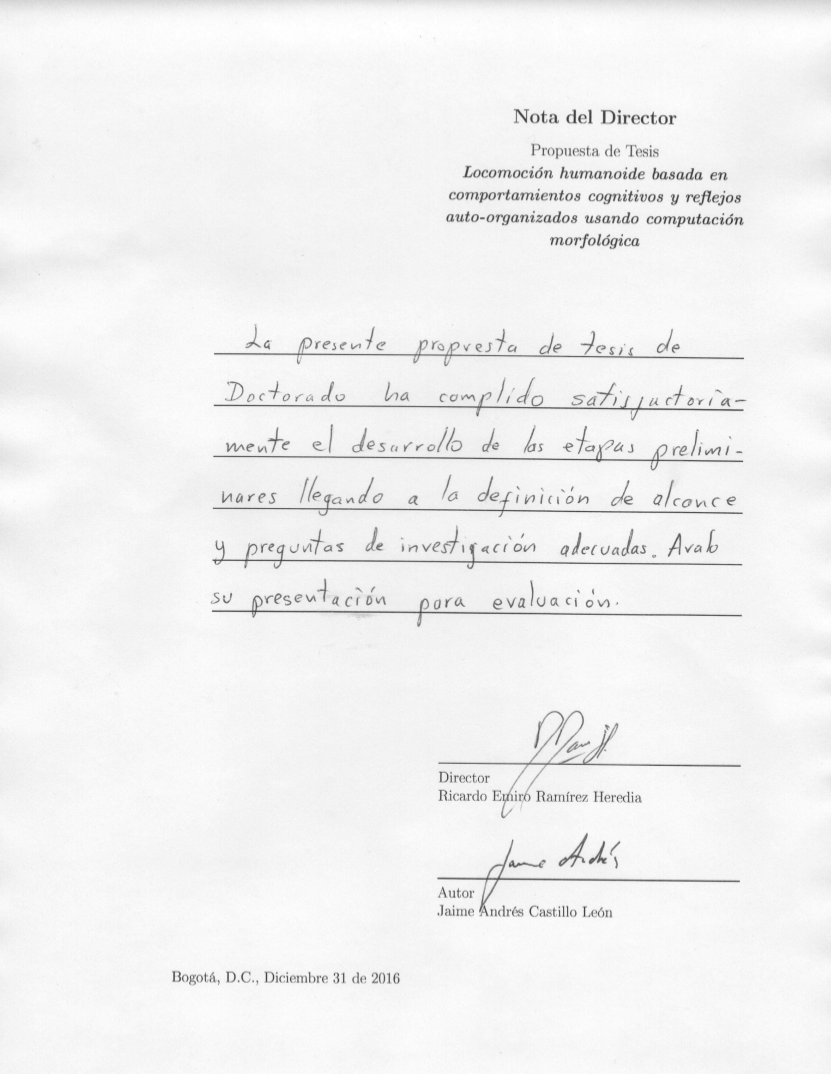 Nota del Director
Propuesta de Tesis
Locomoción humanoide basada en
comportamientos cognitivos y reflejos
auto-organizados usando computación
morfológica
La presente propuesta de tesis de
Doctorado ha complido satisfactoria-
mente el desarrollo de las etapas prelimi-
nares llegando a la definición de alcance
y preguntas de investigación adecuadas. Avalo
su presentación para evaluación.
Director
Ricardo Emiro Ramírez Heredia
Jaime Andrés
Autor
Jaime Andrés Castillo León
Bogotá, D.C., Diciembre 31 de 2016